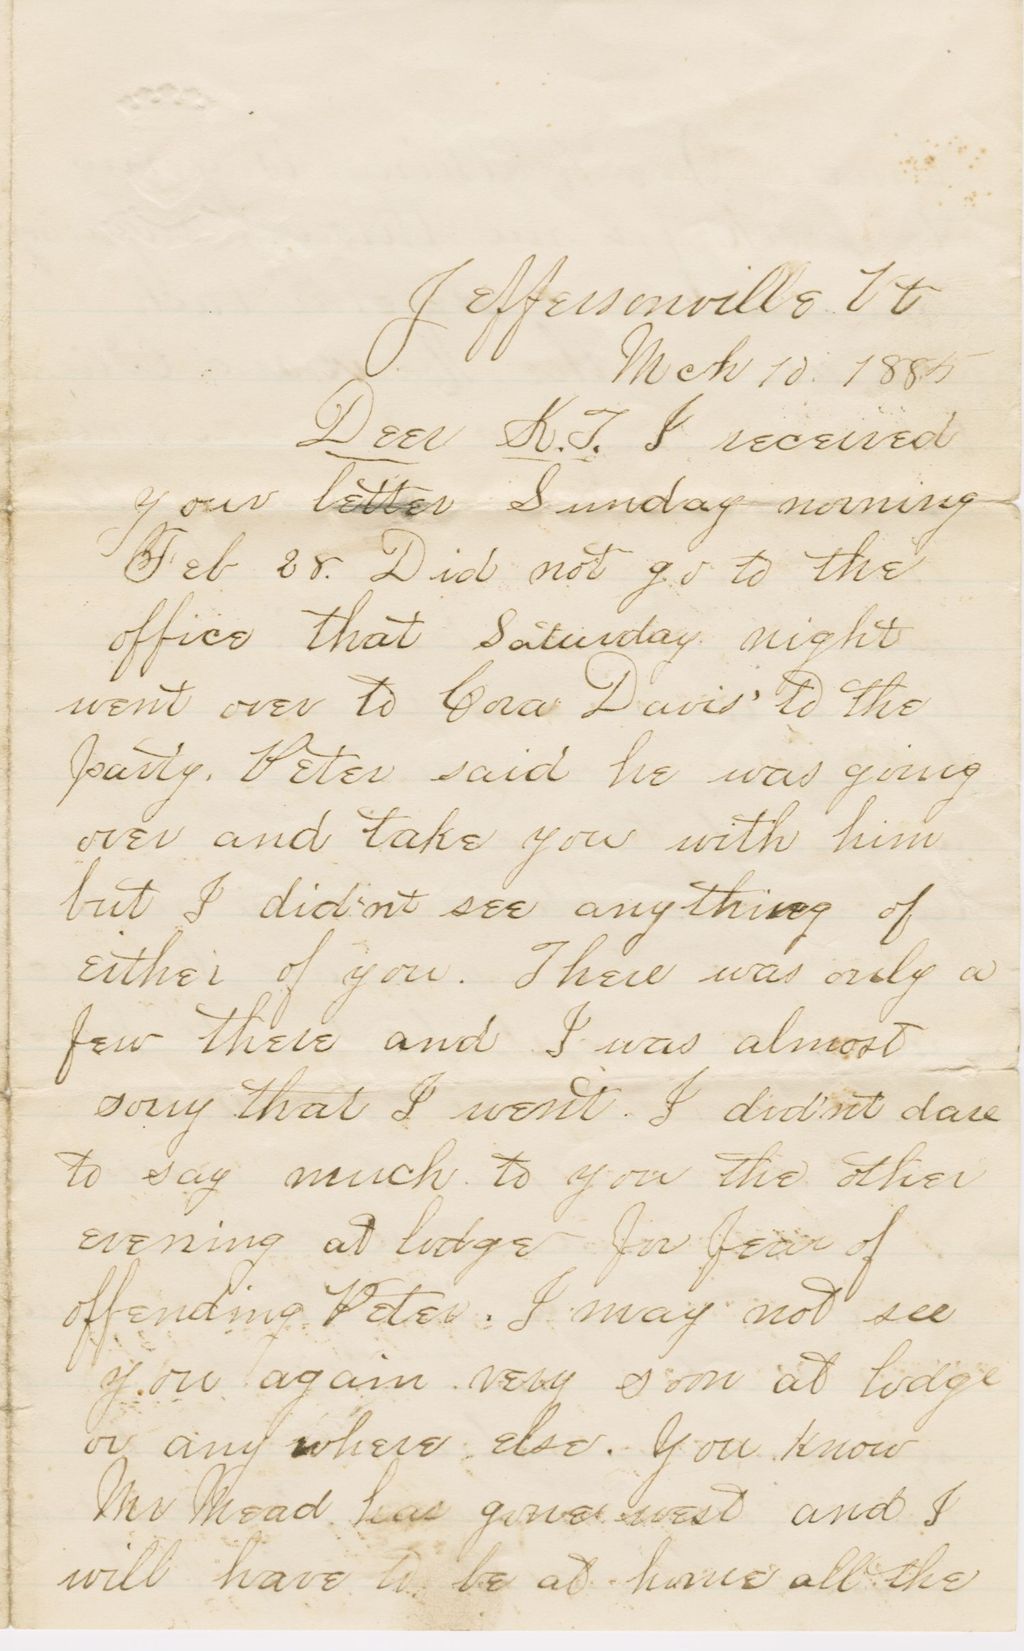 Jeffersonville Vt
Mch 10. 1885
Deer K.T. I received
your letter Sunday morning
Feb 28. Did not go to the
office that Saturday night
went over to Cora Davis' to the
party. Peter said he was going
over and take you with him
but I did'nt see anything of
either of you. There was only a
few there and I was almost
sorry that I went. I did'nt dare
to say much to you the other
evening at lodge for fear of
offending Peter. I may not see
you again very soon at lodge
or any where else. You know
Mr Mead has gone west and I
will have to be at home all the